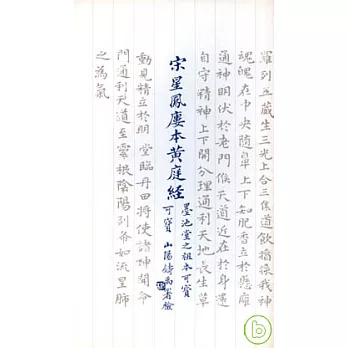 羅列五藏生三光上合三焦道飲醬漿我神
魂魄在中央隨鼻上下知肥香立於懸癰
通神明伏於老門候天道近在於身還
自守精神上下開分理通利天地長生草
宋星鳳廔本黃庭経
墨池堂之祖本可寳
可寳 山陽
動見精立於明堂臨丹田將使諸神開命
門通利天道至靈根陰陽列布如流星肺
之為氣